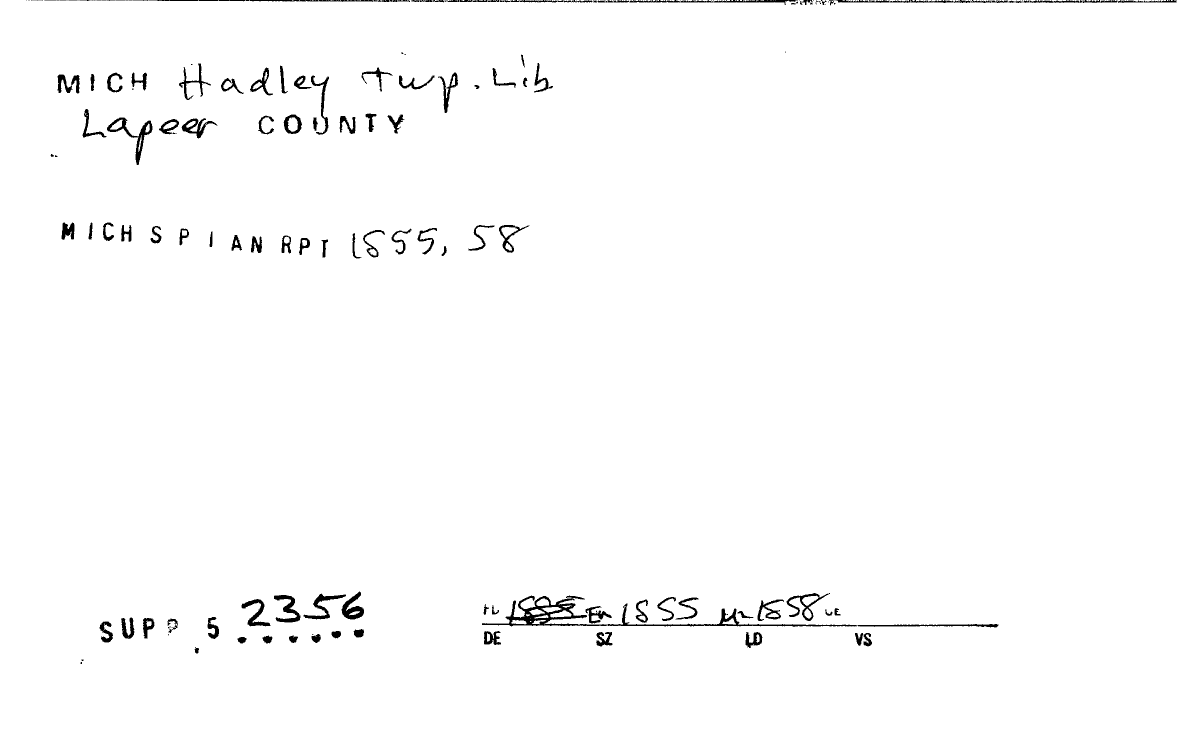 MICH Hadley twp. Lib
Lapeer COUNTY
MICH S P I AN RPT 1855, 58
SUPP 5 2356
1855 1858
DE SZ LD VS